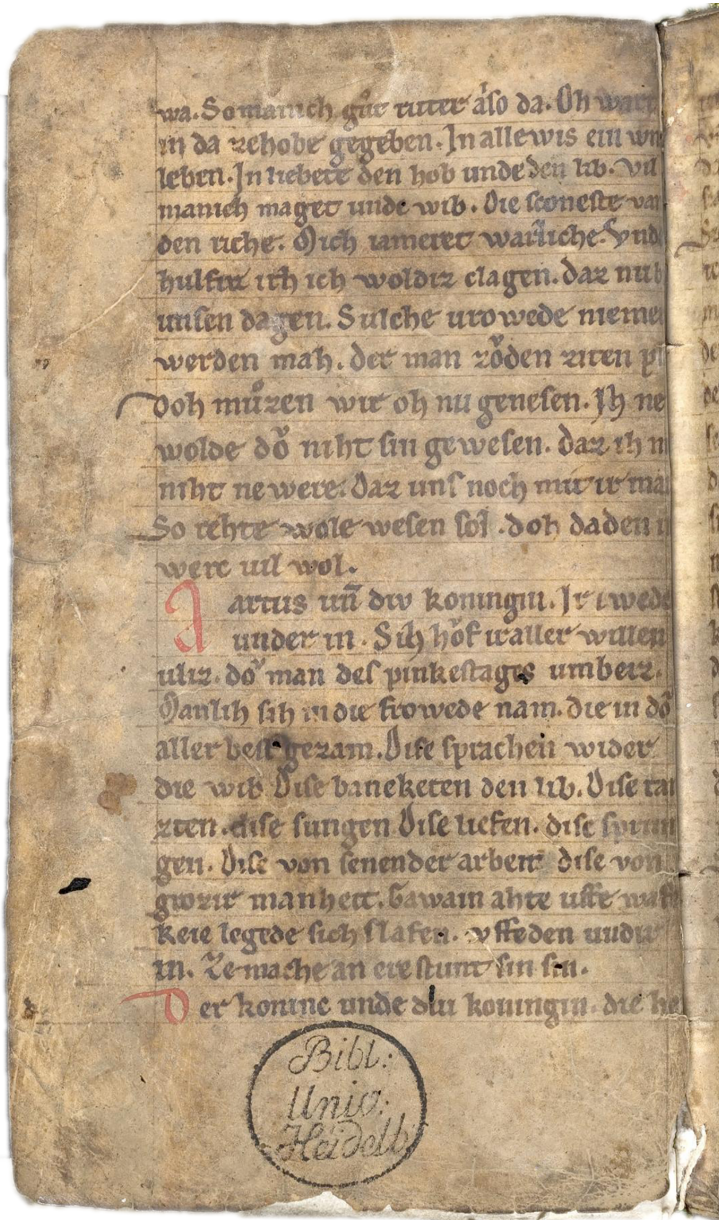 wa. So manich gůt ruter also da. Oh wart
in da zehobe gegeben. In allewis ein
leben. In liebete den hob unde den lib. vil
manich maget unde wib. Die sconeste
den riche. Mich iameret warliche. Vnde
hulfiz ich ich woldiz clagen. daz nu
unsen dagen. Sulche urowede nieme
werden mah. der man zöden ziten
Doh můzen wir oh nu genesen. Ih ne
wolde dŏ niht sin gewesen. daz ih
niht newere. Daz uns noch mit ir
So rehte wole wesen sol. doh daden
werc uil wol.
Artus uñ div koningin. Ir iwede
under in. Sih hŏf ir aller willen
uliz. dŏ man des pinkestages umbeiz.
Manlih sih in die frowede nam. die in dŏ
aller best gezam. Dise sprachen wider
die wib Dise baneketen den lib. Dise
zten. dise sungen Dise liefen. dise sprun
gen. Dise von senender arbeit dise von
grozir manheit. Gawain ahte uffe
keie legede sich slafen. vffeden undir
in. Ze mache an ere stunt sin sin.
Der koninc unde diu koningin. die
Bibl:
Univ:
Heidelb